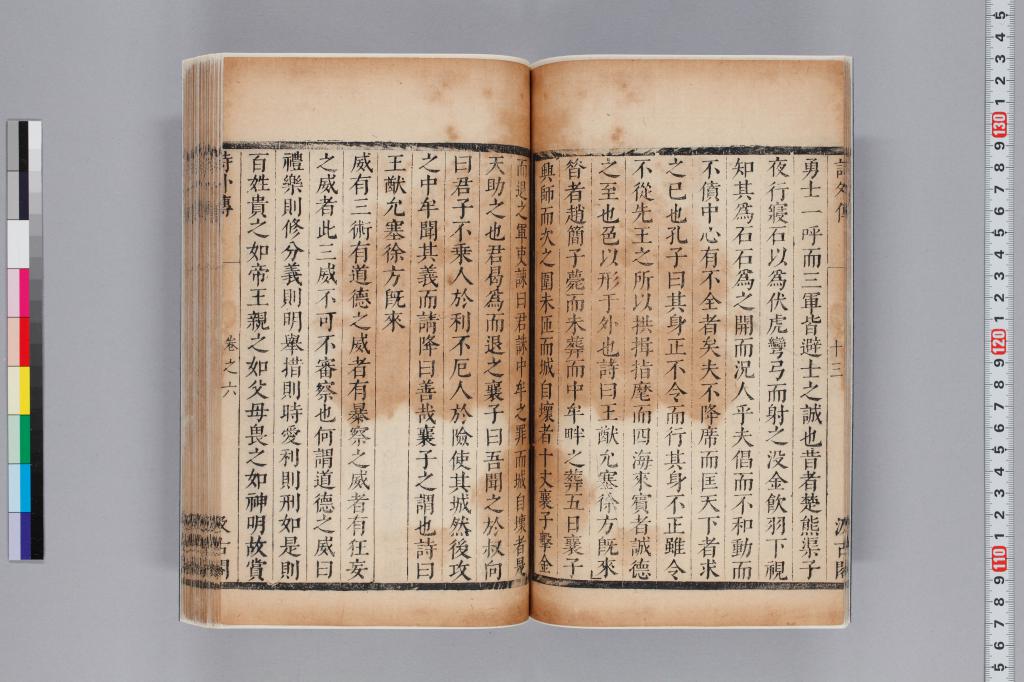 詩外傳
十三
汲古閣
勇士一呼而三軍皆避士之誠也昔者楚熊渠子
夜行寢石以爲伏虎彎弓而射之没金飲羽下視
知其爲石石爲之開而況人乎夫倡而不和動而
不僨中心有不全者矣夫不降席而匡天下者求
之已也孔子曰其身正不令而行其身不正雖令
不從先王之所以拱揖指麾而四海來賓者誠德
之至也色以形于外也詩曰王猷允塞徐方旣來
昝者趙簡子薨而未葬而中牟畔之葬五日襄子
興師而次之圍未匝而城自壞者十丈襄子擊金
而退之軍吏諫曰君誅中牟之罪而城自壞者是
天助之也君曷爲而退之襄子曰吾聞之於叔向
曰君子不乘人於利不厄人於險使其城然後攻
之中牟聞其義而請降曰善哉襄子之謂也詩曰
王猷允塞徐方旣來
威有三術有道德之威者有暴察之威者有狂妄
之威者此三威不可不審察也何謂道德之威曰
禮樂則修分義則明舉措則時愛利則刑如是則
百姓貴之如帝王親之如父母畏之如神明故賞
詩外傳
卷之六
汲古閣